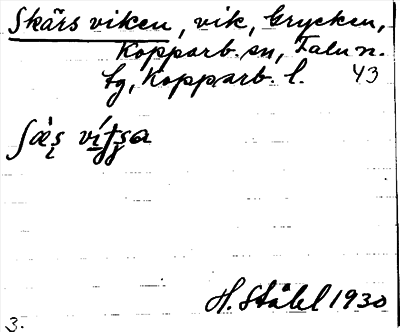 Skärs viken, vik, Grycken,
Kopparb. sn, Falun.
tg, Kopparb. l. 43
H. Ståhl 1930
3.